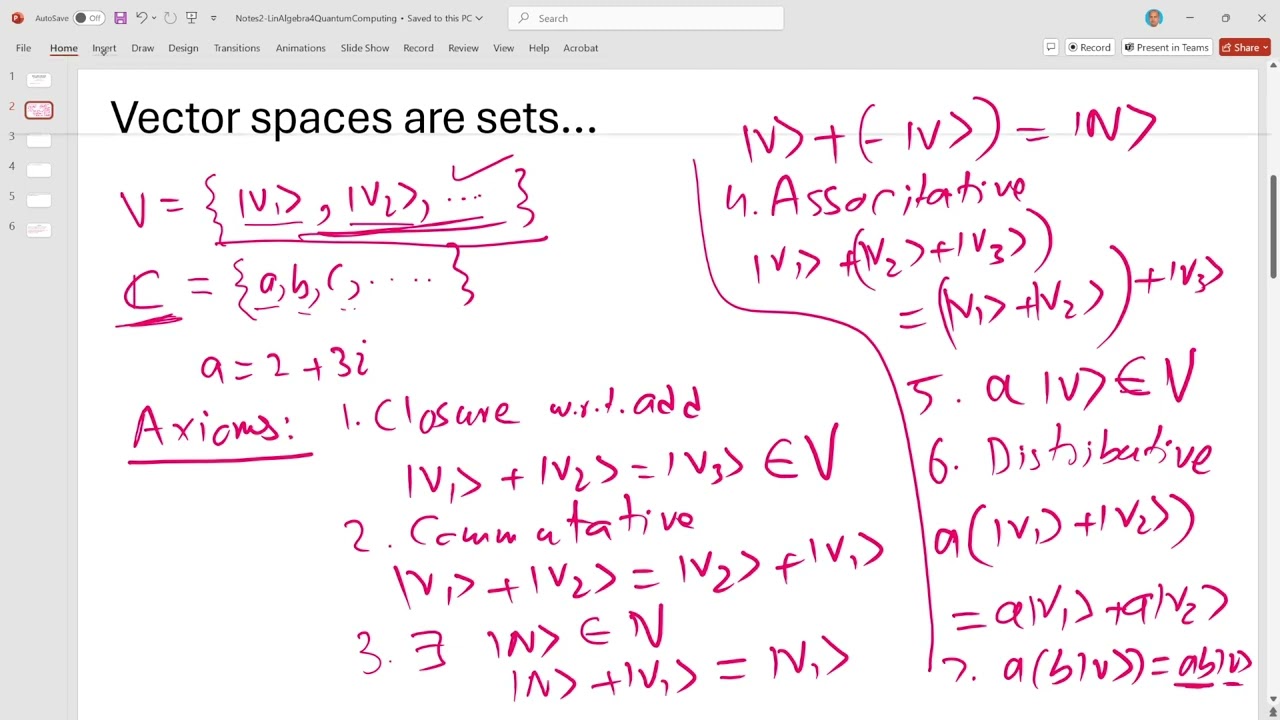 AutoSave Off Notes2-LinAlgebra4QuantumComputing • Saved to this PC Search
File Home Insert Draw Design Transitions Animations Slide Show Record Review View Help Acrobat Record Present in Teams Share
1
2
3
4
5
6
Vector spaces are sets...
V = { |V₁>, |V₂>, .... }
ℂ = { a, b, c, ..... }
a = 2 + 3i
Axioms: 1. Closure w.r.t. add
|V₁> + |V₂> = |V₃> ∈ V
2. Commutative
|V₁> + |V₂> = |V₂> + |V₁>
3. ∃ |N> ∈ V
|N> + |V₁> = |V₁>
|V> + (- |V>) = |N>
4. Assoritative
|V₁> + (|V₂> + |V₃>)
= (|V₁> + |V₂>) + |V₃>
5. a |V> ∈ V
6. Distributive
a(|V₁> + |V₂>)
= a|V₁> + a|V₂>
7. a(b|V>) = ab|V>